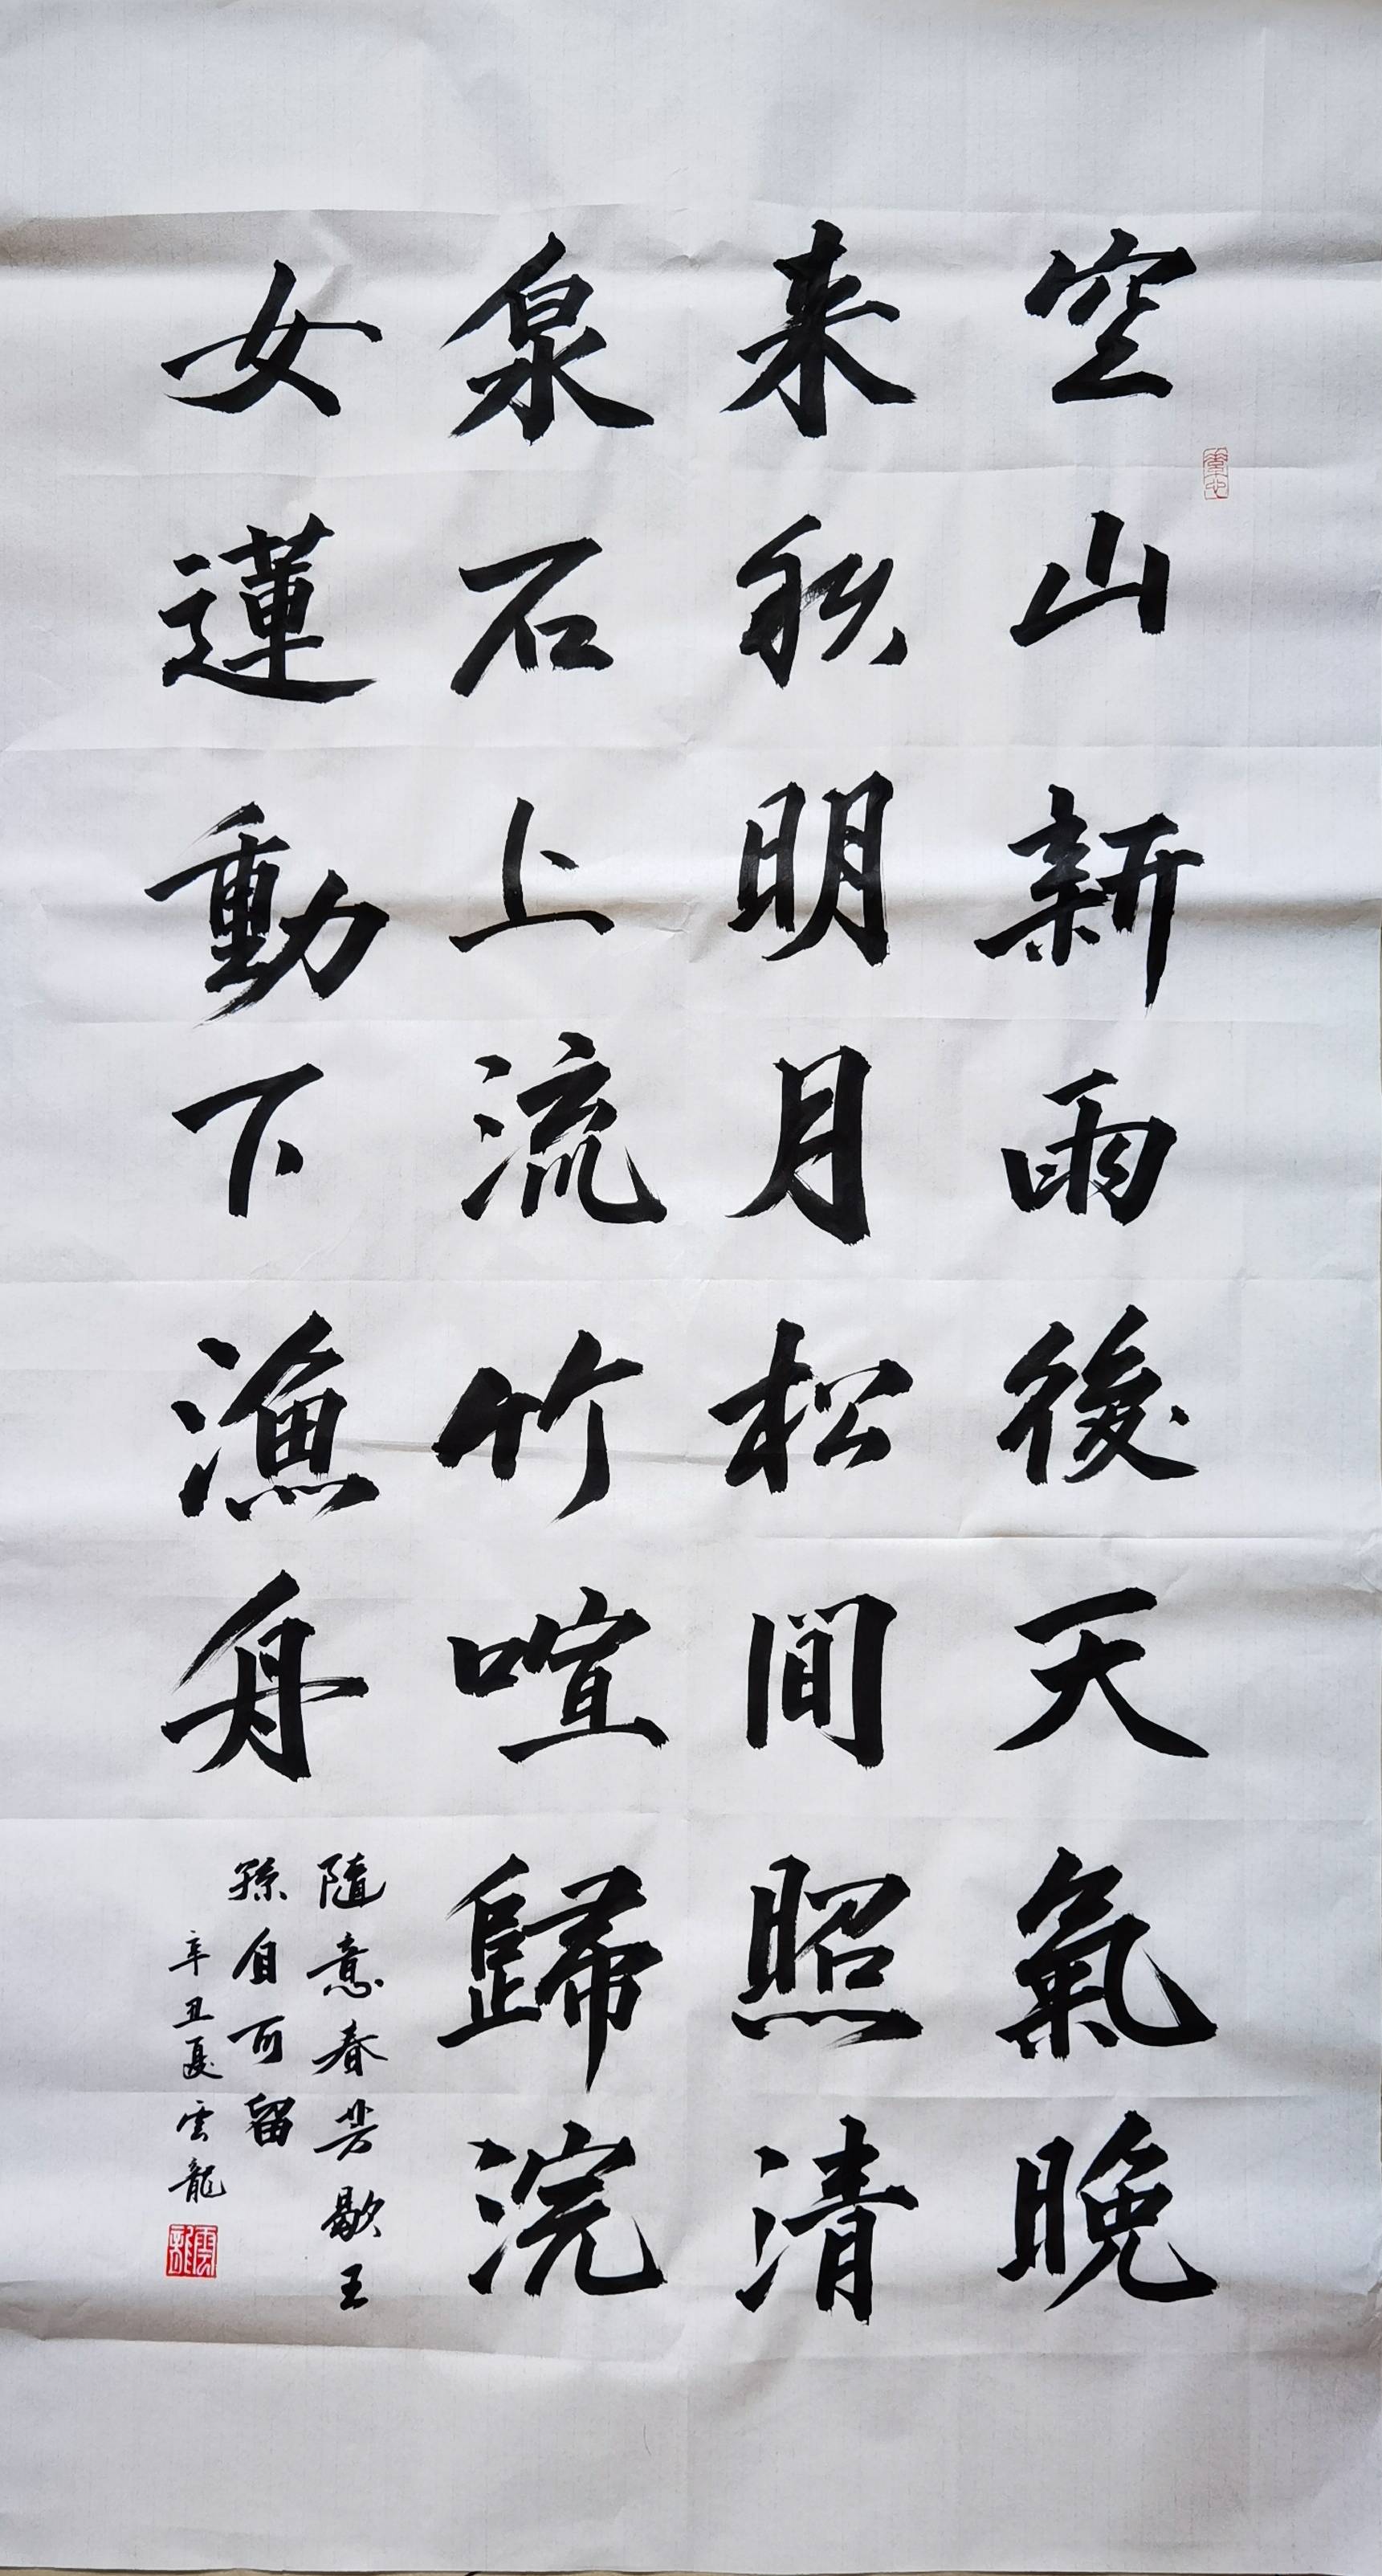 空山新雨後天氣晚
来秋明月松間照清
泉石上流竹喧歸浣
女蓮動下漁舟
隨意春芳歇王
孫自可留
辛丑夏雲龍
雲龍